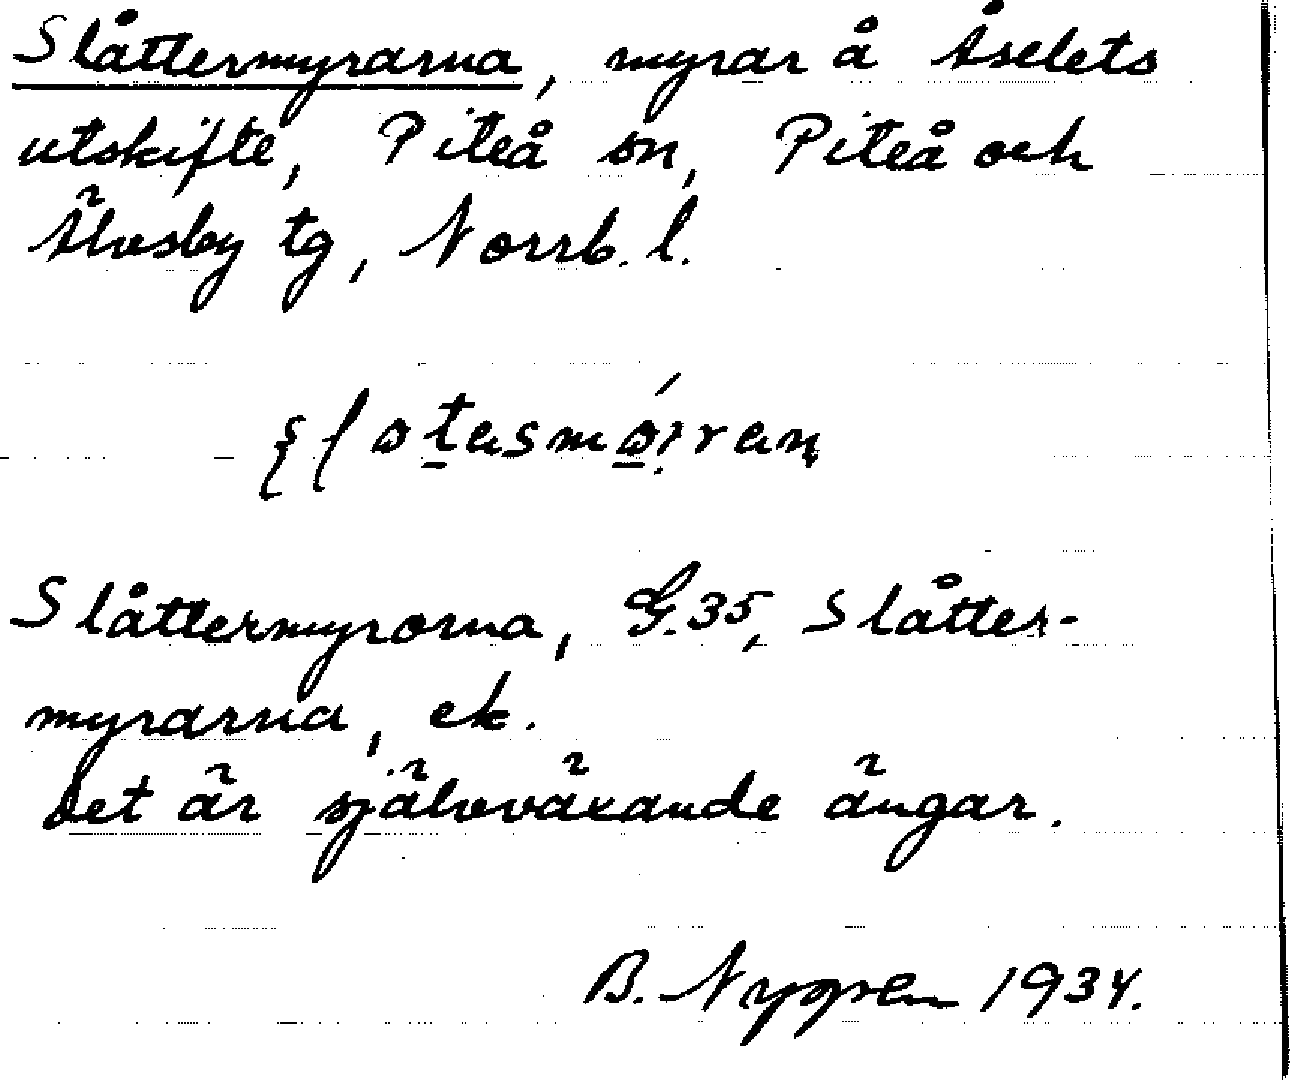 Slåttermyrarna, myrar å Åselets
utskifte, Piteå sn, Piteå och
Älvsby tg, Norrb. l.
Slåttermyrorna, G.35, Slåtter-
myrarna, ek.
Det är självväxande ängar.
B. Nygren 1934.